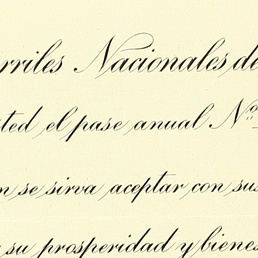 rriles Nacionales de
ted el pase anual Nº
n se sirva aceptar con sus
su prosperidad y bienes